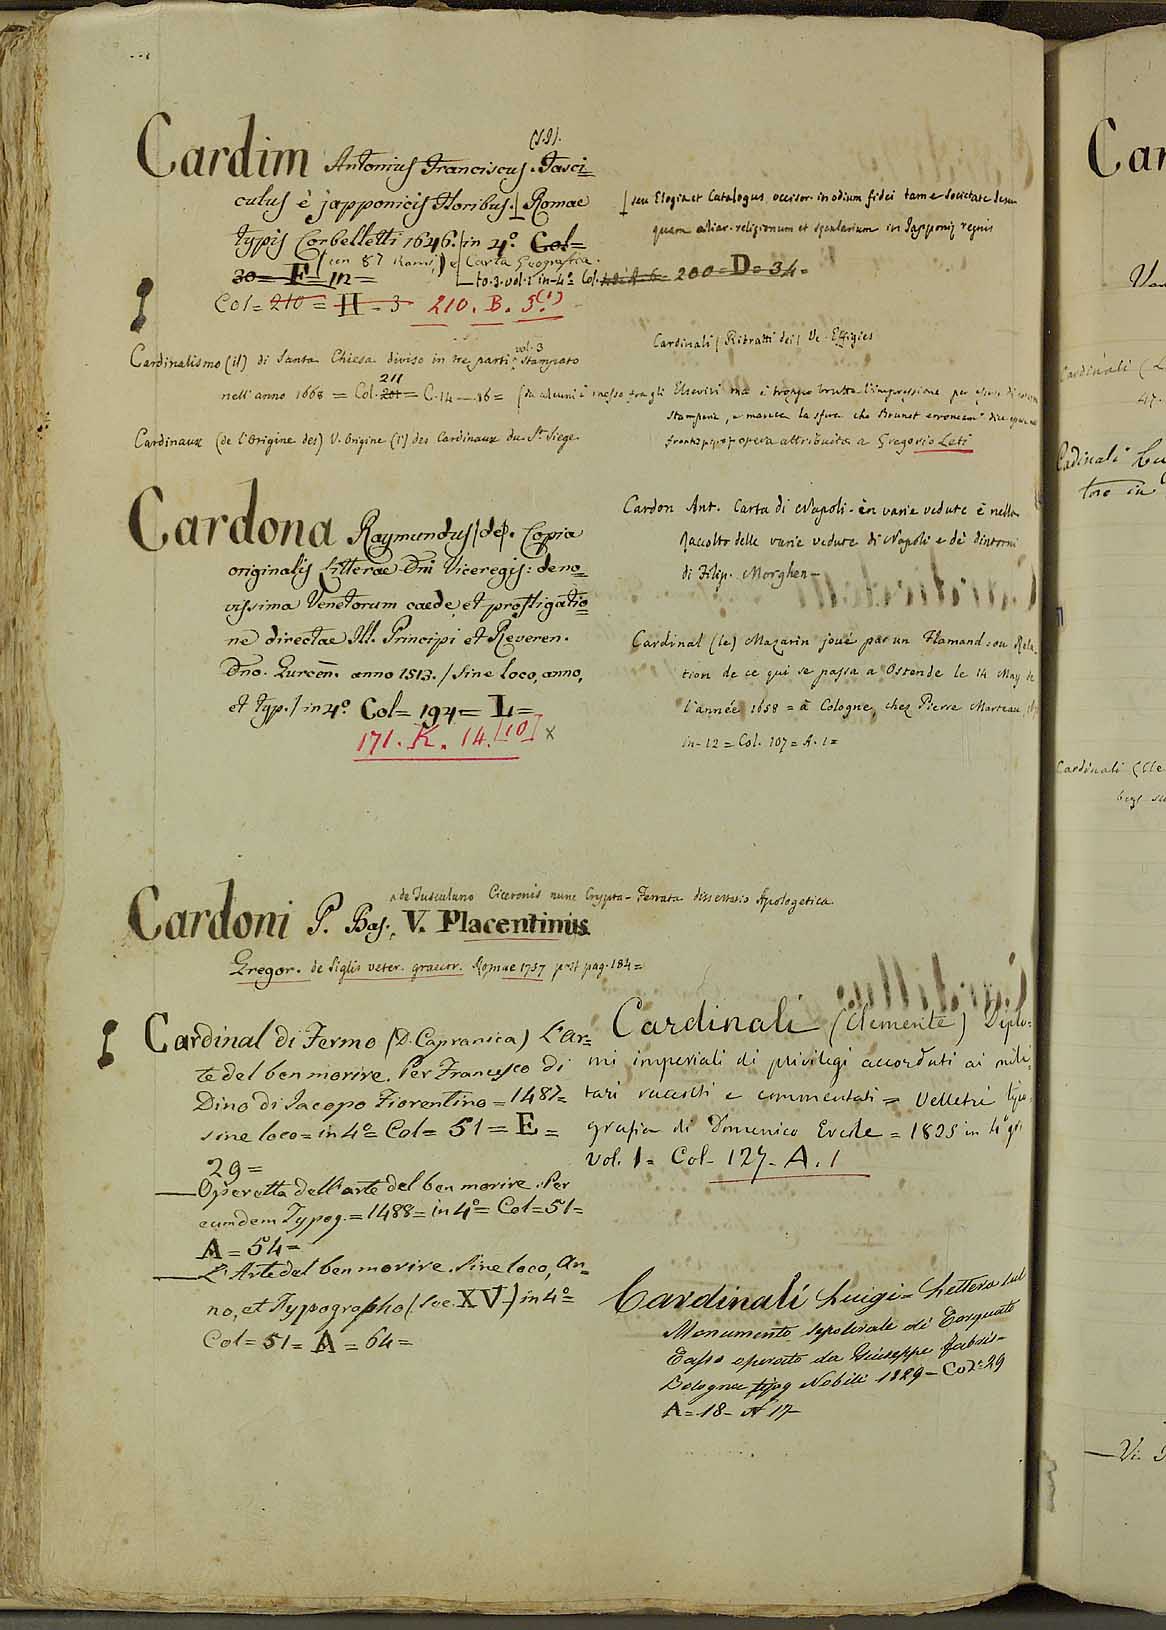 (S.I).
Cardim Antonius Franciscus. Fasci=
culus è japponicis Floribus. Romae
typis Corbelletti 1646. in 4º. Col=
30= F= 112=
(con 87 Rami) e Carta Geografica.
to. 3. vol. 1 in-4º Col. 200=D=34=
Col= 210 = H = 3 210. B. 5.(1)
seu Elogia et Catalogus occisor. in odium fidei tam e Societate Jesu
quam aliar. religionum et secularium in Japponiȩ regnis
Cardinalismo (il) di Santa Chiesa diviso in tre parti vol. 3 Stampato
nell'anno 1668 = Col. 201 = C. 14 — 16 = (da alcuni è messo fra gli Elseviri ma è troppo brutta l'impressione per
211
Stamperia, e manca la sfera che Brunet
frontespizio opera attribuita a Gregorio Leti
Cardinali (Ritratti dei) Ve. Effigies
Cardinaux (de l'Origine des) V. Origine (l') des Cardinaux du St. Siege.
Cardona Raymundus (de). Copia
originalis Litterae Dni Viceregis: de no=
vissima Venetorum caede, et profligatio=
ne directae Ill. Principi et Reveren.
Dno. Gurcen. anno 1513. / Sine loco, anno,
et typ. / in 4º. Col= 194= L=
171. K. 14. [10] x
Cardon Ant. Carta di Napoli in varie vedute è nella
Raccolta delle varie vedute di Napoli e de' dintorni
di Filip. Morghen—
Cardinal (le) Mazarin joué par un Flamand: ou Rela-
tion de ce qui se passa a Ostende le 14 May de
l'année 1658 = à Cologne, chez Pierre Marteau,
in-12 = Col. 107 = A. 1=
de Tusculano Ciceronis nunc Crypta-Ferrata dissertatio Apologetica
Cardoni P. Bas., V. Placentinus
Gregor. de Siglis veter. graecor. Romae 1757 post pag. 184=
Cardinal di Fermo (D. Capranica) L'Ar=
te del ben morire. Per Francesco di
Dino di Jacopo Fiorentino = 1487=
sine loco = in 4º= Col= 51 = E =
29=
— Operetta dell'arte del ben morire. Per
eumdem Typog. = 1488= in 4º= Col= 51=
A = 54=
— L'Arte del ben morire. Sine loco, An=
no, et Typographo (Sec. XV.) in 4º=
Col= 51= A = 64=
Cardinali (Clemente) Diplo=
mi imperiali di privilegi accordati ai mili
tari raccolti e commentati = Velletri tipo
grafia di Domenico Ercole = 1825 in 4º
vol. 1= Col= 127- A. 1
Cardinali Luigi = Lettera sul
Monumento sepolcrale di Torquato
Tasso operato da Giuseppe fabris=
Bologna tipog Nobili 1829= Col: 29
A=18- Nº 17-